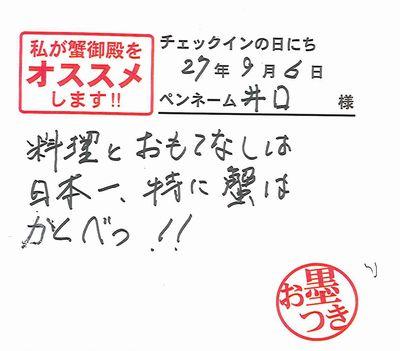 私が蟹御殿を
オススメ
します!!
チェックインの日にち
27年9月6日
ペンネーム 井口 様
料理とおもてなしは
日本一、特に蟹は
かくべつ!!
お墨つき